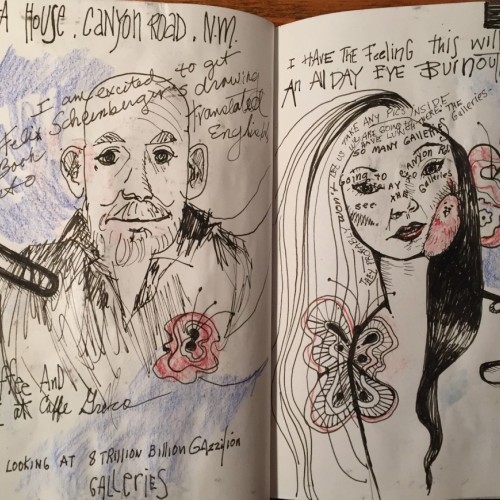 A HOUSE. CANYON ROAD. N.M.
I am excited to get
Felix Scheinberger's drawing
Book translated
into English
Coffee And
at Caffe Greco
LOOKING AT 8 TRILLION BILLION GAZZILION
GALLERIES
I HAVE THE FEELING this will
An All DAY EYE BURNOUT
WON'T LET US TAKE ANY PICS INSIDE
WE ARE GOING TO
HAVE LUNCH HERE. THE
SO MANY GALLERIES
Galleries.
CANYON Rd
Going to
see
Galleries
THEY PROBABLY